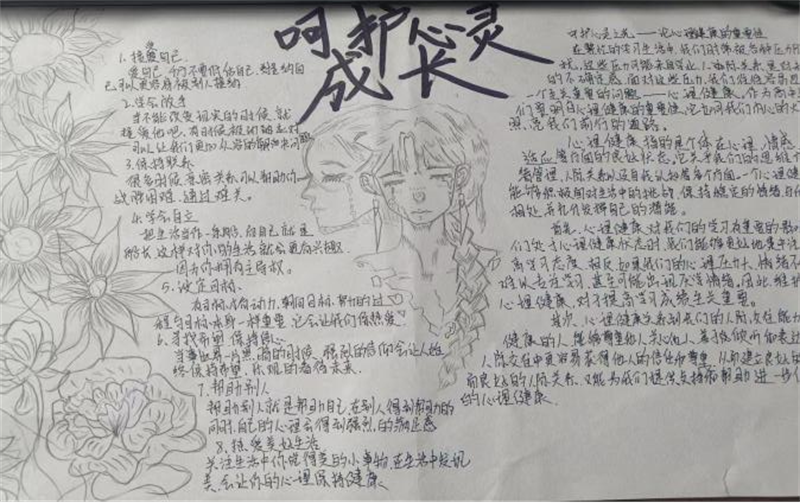 呵护心灵
成长
1. 接爱自己
爱自己,千万不要低估自己,都接纳自
己,可以更容易被别人接纳
2. 学会放手
当不能改变现实的时候,就
接受他吧,有时候被动的去对
可以让我们更加从容的解决问题
3. 保持联系
很多时候,亲密关系可以帮助你一
战胜困难,通过难关。
4. 学会自立
把生活当作一条船,向自己就是
船长,这样对你的生活就会更有兴趣
因为你拥有主导权。
5. 设定目标
有目标,才有动力,朝向目标,努力的过
程与目标本身一样重要,它会让我们保热爱
6. 寻找希望,保持信心
当事业寿一片黑暗的时候,强烈的信仰会让人始
终保持希望,乐观的看待未来
7. 帮助别人
帮助别人就是帮助自己,在别人得到帮助的
同时,自己的心理会得到强烈的满足感
8. 热爱美好生活
关注生活中你觉得美的小事物,在生活中发现
美,会让你的心理保持健康
呵护心灵 — 论心理健康的重要性
在繁忙的学习生活中,我们时常被各种压力
战,这些压力可能来自学业、人际关系
的不确定感,面对这些压力,我们往往容易
一个至关重要的问题——心理健康,作为高中
们要明白心理健康的重要性,它如同我们内心的
照亮我们前行的道路。
心理健康指的是个体在心理、情感
适应等方面的良好状态,它关乎我们的思维
绪管理、人际关系以及自我认知等多个方面,一个心理健
能够积极面对生活中的挑战,保持稳定的情绪,
相处,并充分发挥自己的潜能。
首先,心理健康对我们的学习有重要的影
们处于心理健康状态时,我们能够更好地集中
高学习态度,相反,如果我们的心理压力大、情绪不
难以专注学习,甚至可能出现厌学情绪。因此,维护
心理健康,对于提高学习成绩至关重要。
其次,心理健康关系到我们的人际交往能力
健康的人,能够尊重他人,关心他人,善于倾听和表达
人际交往中更容易获得他人的信任和尊重,从而建立良好的
而良好的人际关系,又能为我们提供支持和帮助,进一步
的心理健康。